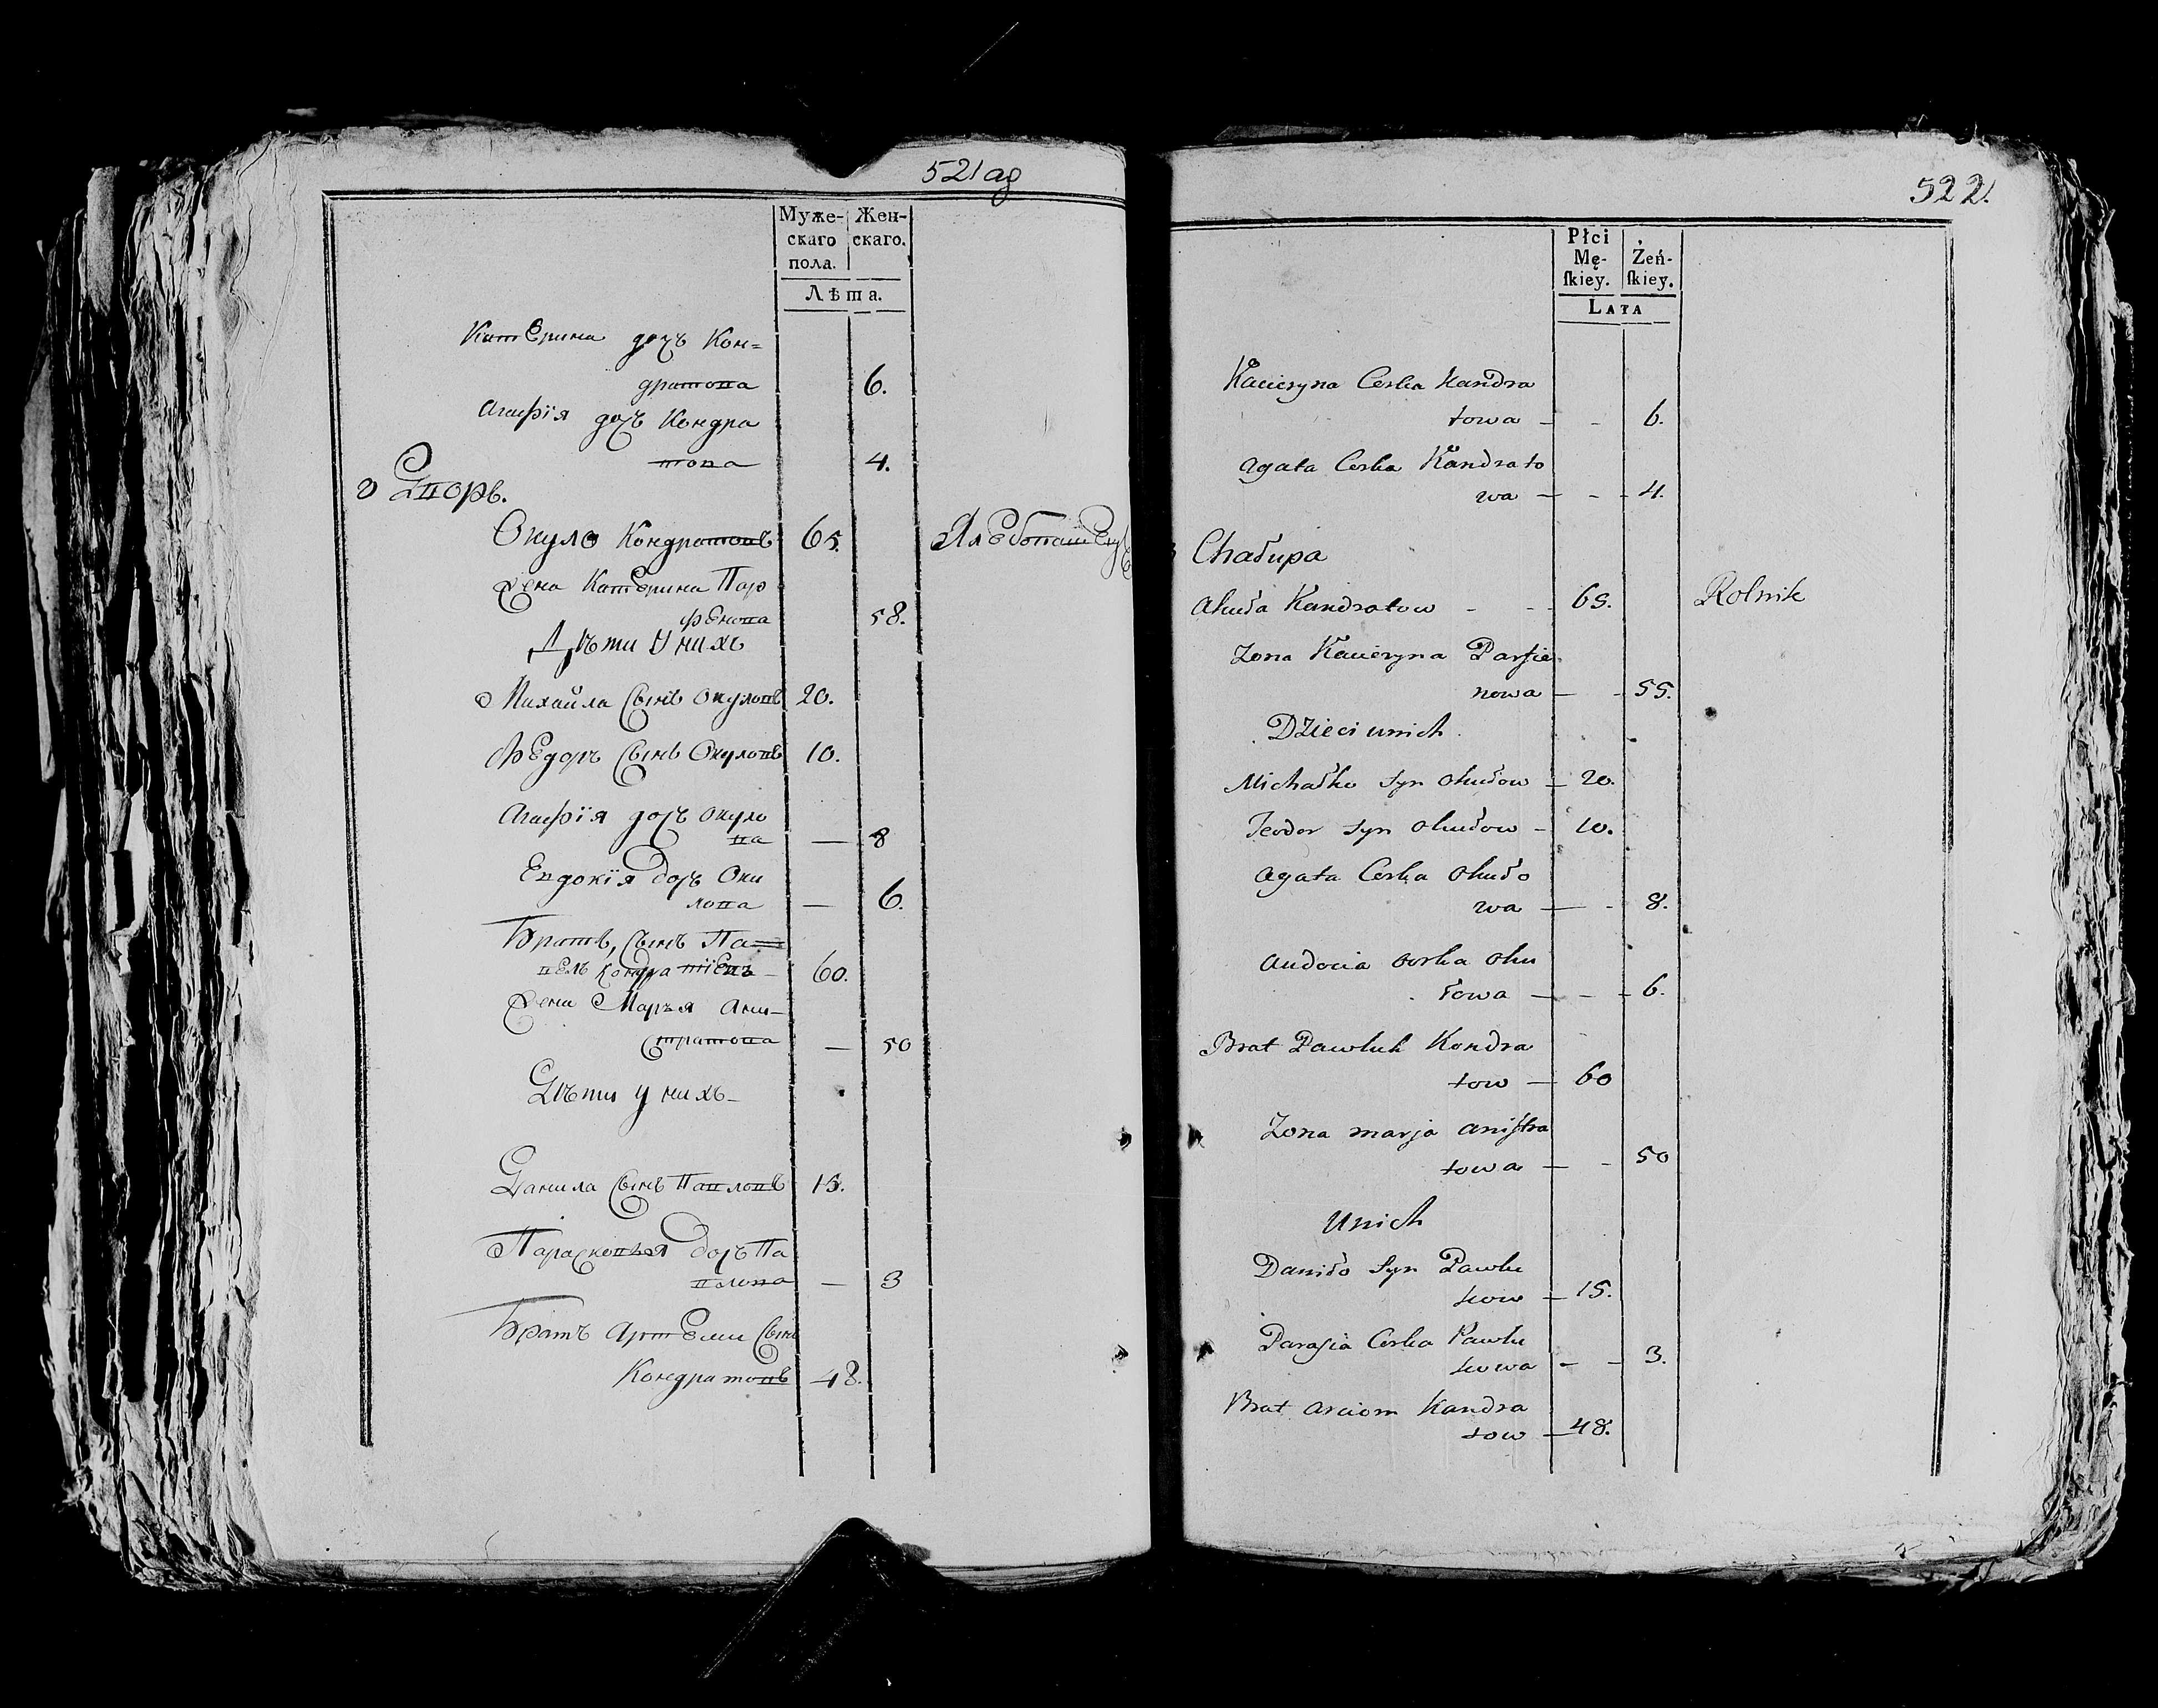 521 аg
Муже-
скаго
пола.
Жен-
скаго.
Лѣта.
Катерина дочь Кон=
дратова 6.
Агафїя дочь Кондра
това 4.
Дворъ.
Окуло Кондратовъ 65.
жена Катерина Пар
фенова 58.
Дѣти у нихъ
Михайла сынъ Окуловъ 20.
Федоръ сынъ Окуловъ 10.
Агафїя дочь Окуло
ва — 8
Евдокїя дочь Оку
лова — 6.
Братъ, сынъ Па=
велъ Кондратїевъ — 60.
жена Марья Ани-
стратова — 50
Дѣти у нихъ —
Данила сынъ Павловъ 15.
Парасковья дочь Па
влова — 3
Братъ Артеми сынъ
Кондратовъ 48.
522.
Płci
Mę-
ſkiey.
Żeń-
ſkiey.
LATA
Kacieryna Corka Kandra
towa — - 6.
Agata Corka Kandrato
wa — - - 4.
Chałupa
Akuła Kandratow - - - 65. Rolnik
Zona Kacieryna Parfie
nowa — - 55.
Dzieci unich.
Michałko Syn Okułow — 20.
Teodor Syn Okułow - 10.
Agata Corka Okuło
wa — - 8.
Audocia Corka Oku
łowa — - - 6.
Brat Pawluk Kondra
tow — 60
Zona marja aniſtra
towa — - 50
Unich
Daniło Syn Pawlu
kow — 15.
Paraſia Corka Pawlu
kowa - - 3.
Brat Arciom Kandra
tow — 48.